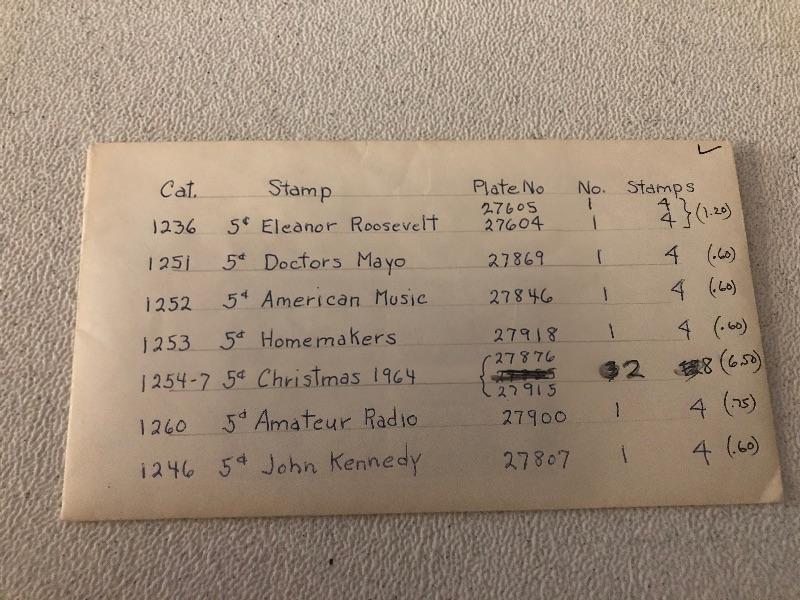 Cat. Stamp Plate No No. Stamps
27605 1 4
1236 5¢ Eleanor Roosevelt 27604 1 4 } (1.20)
1251 5¢ Doctors Mayo 27869 1 4 (.60)
1252 5¢ American Music 27846 1 4 (.60)
1253 5¢ Homemakers 27918 1 4 (.60)
{ 27876
1254-7 5¢ Christmas 1964 2 8 (6.50)
27915
1260 5¢ Amateur Radio 27900 1 4 (.75)
1246 5¢ John Kennedy 27807 1 4 (.60)